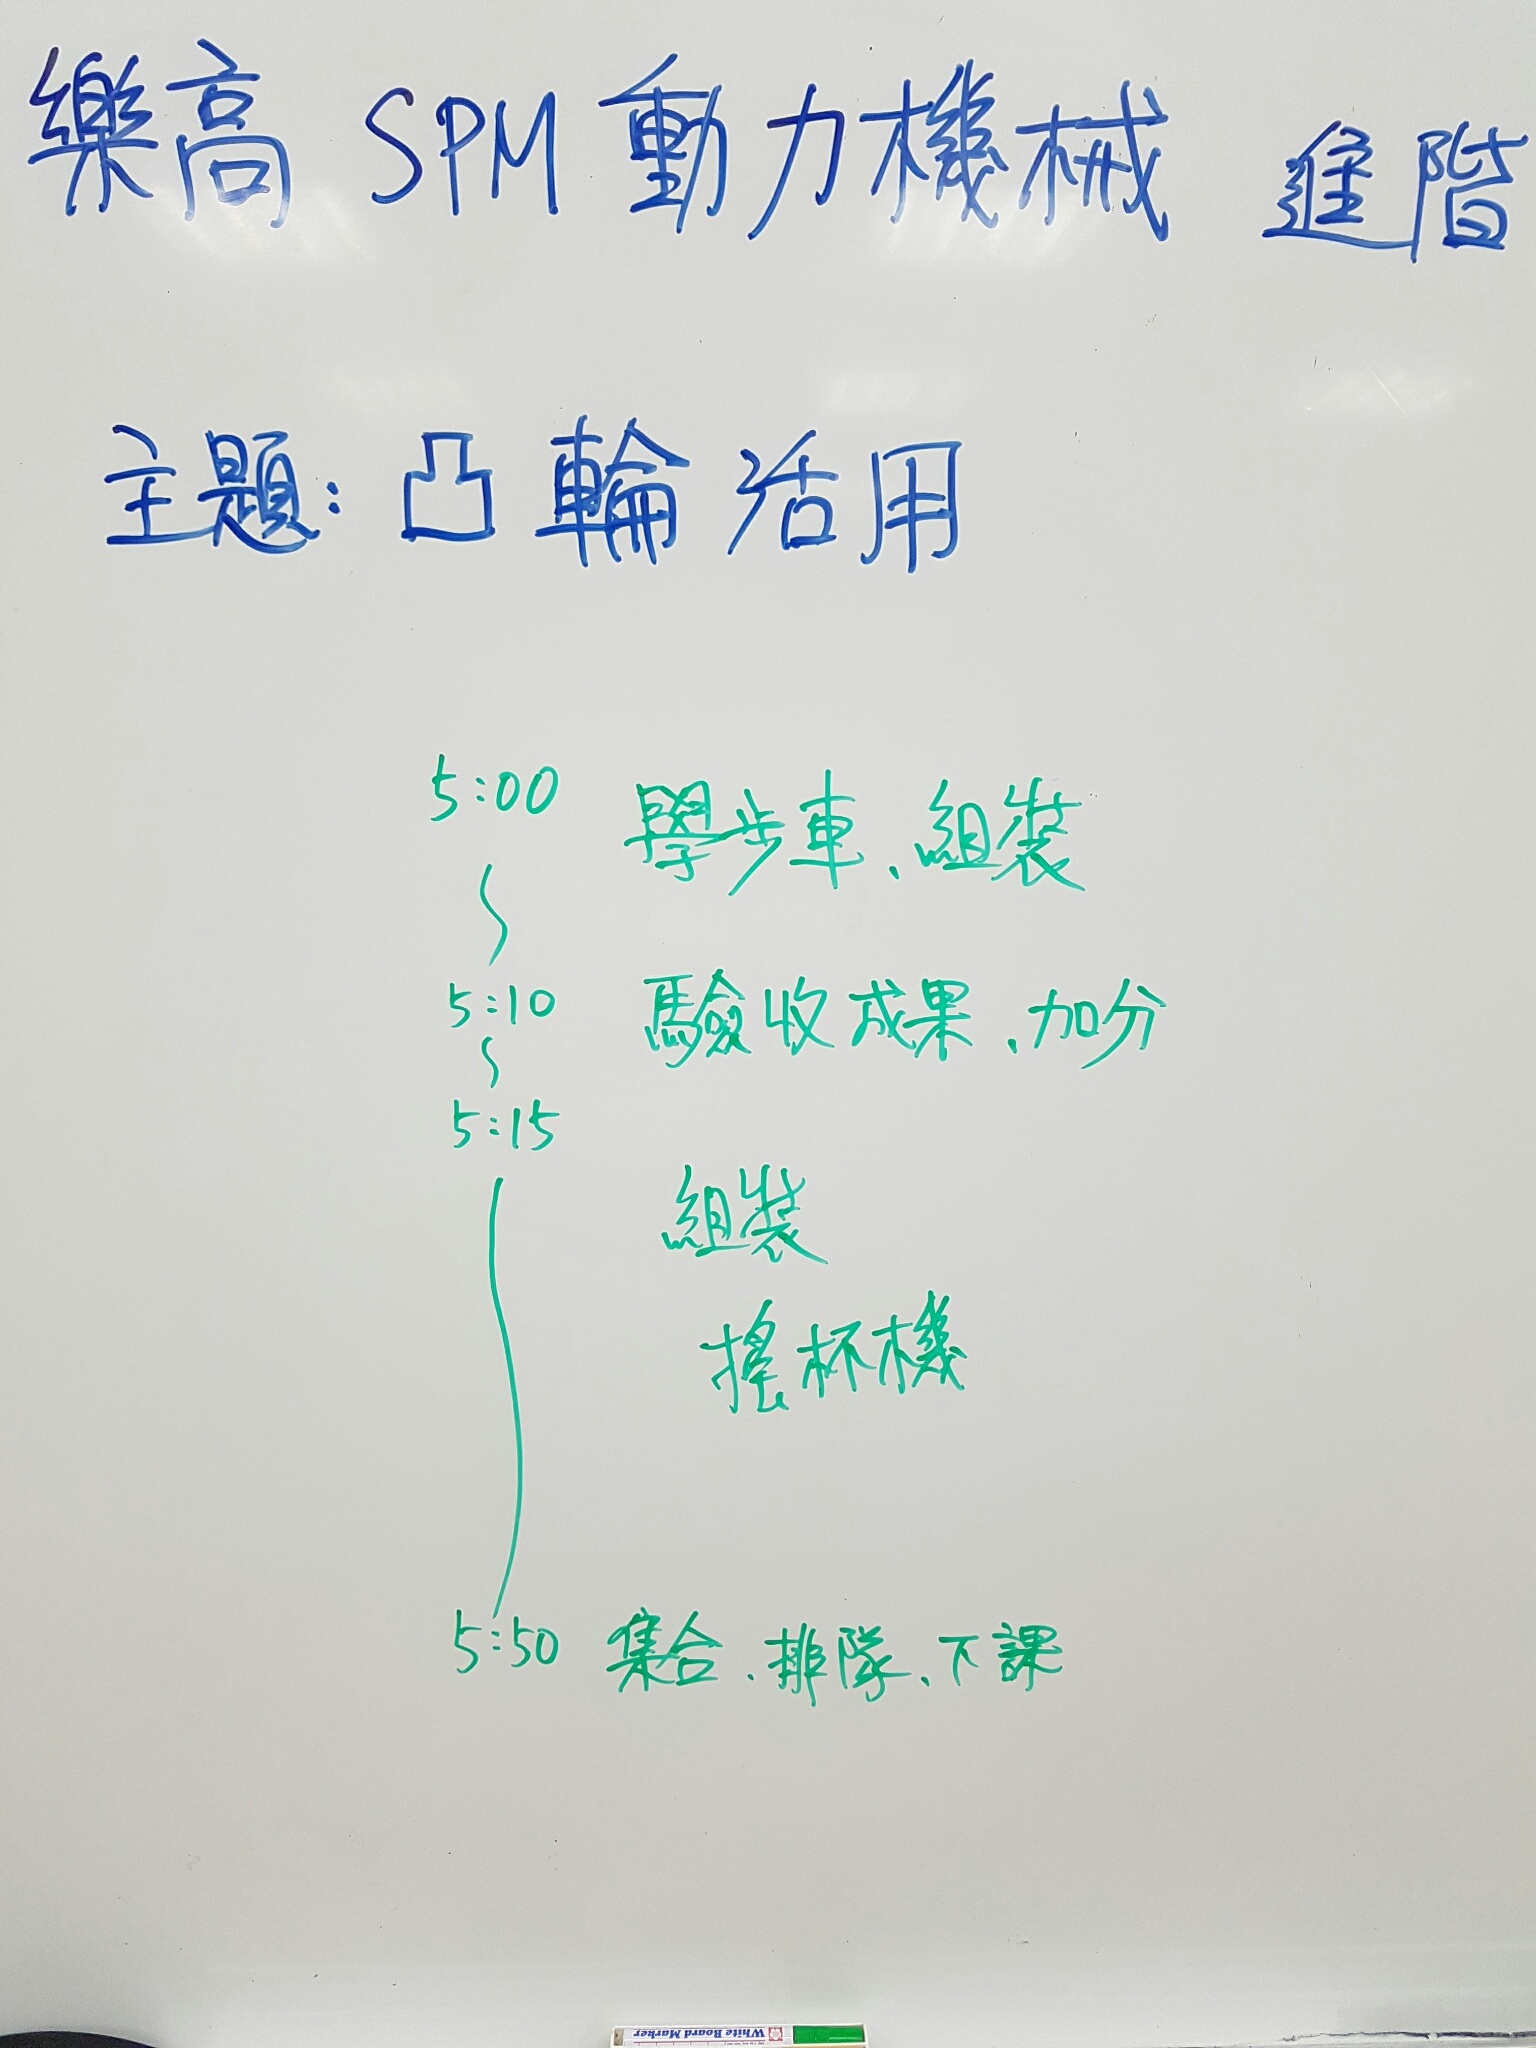 樂高 SPM 動力機械 進階
主題：凸輪活用
5:00 學步車、組裝
～
5:10 驗收成果、加分
～
5:15
組裝
搖杯機
5:50 集合、排隊、下課
White Board Marker